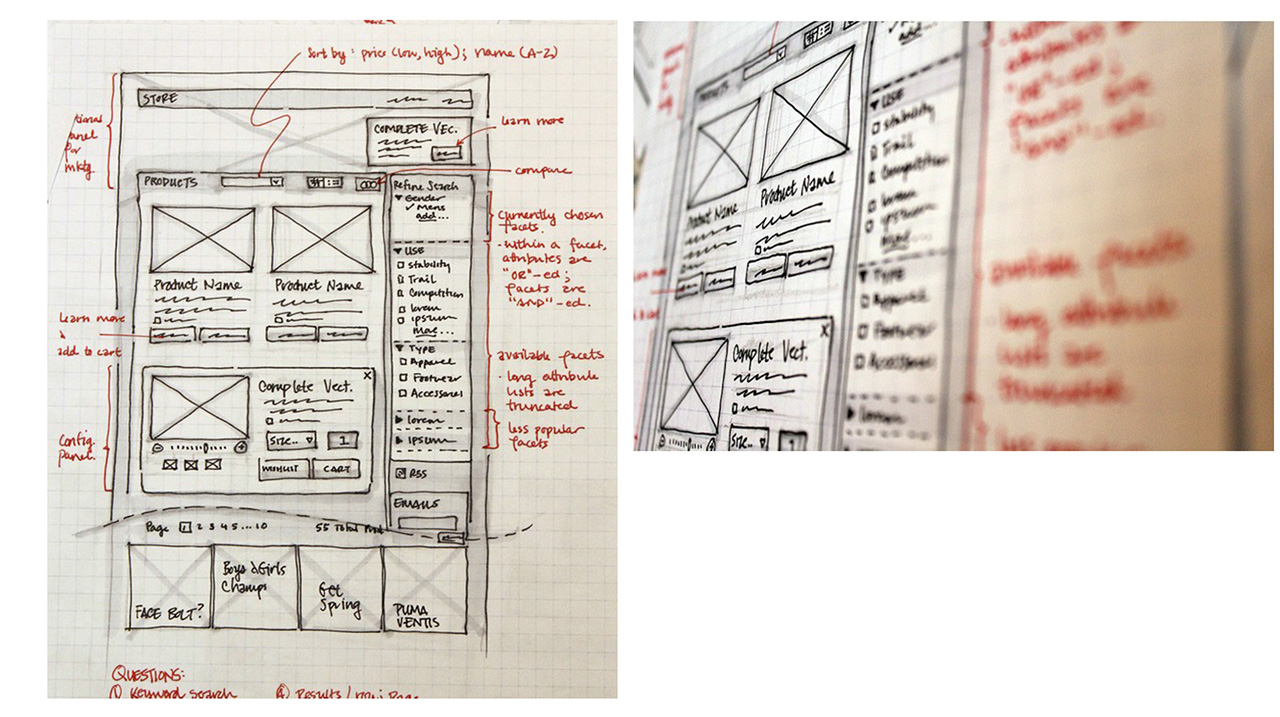 Sort by: price (low, high); name (A-Z)
STORE
tional
panel
for
mktg
COMPLETE VEC.
learn more
PRODUCTS
compare
Refine Search
Gender
✓ Mens
add...
currently chosen
facets.
- within a facet,
attributes are
"OR"-ed;
facets are
"AND"-ed.
USE
Stability
Trail
Competition
lorem
ipsum
more...
Product Name
Product Name
learn more
&
add to cart
TYPE
Apparel
Footwear
Accessories
available facets
- long attribute
lists are
truncated
lorem
ipsum
less popular
facets
Config.
panel.
X
Complete Vect.
Size..
1
WISHLIST
CART
RSS
EMAILS
Page 1 2 3 4 5 ... 10
55 Total Prod
FACE BOLT?
Boys & Girls
Champs
Get
Spring
PUMA
VENTIS
QUESTIONS:
① Keyword search
④ Results / row / page
PRODUCTS
add...
USE
Stability
Trail
Competition
lorem
ipsum
Product Name
Product Name
TYPE
Apparel
Footwear
Accessories
lorem
X
Complete Vect.
Size..
1
attributes are
"OR"-ed;
facets are
"AND"-ed.
available facets
- long attribute
lists are
truncated